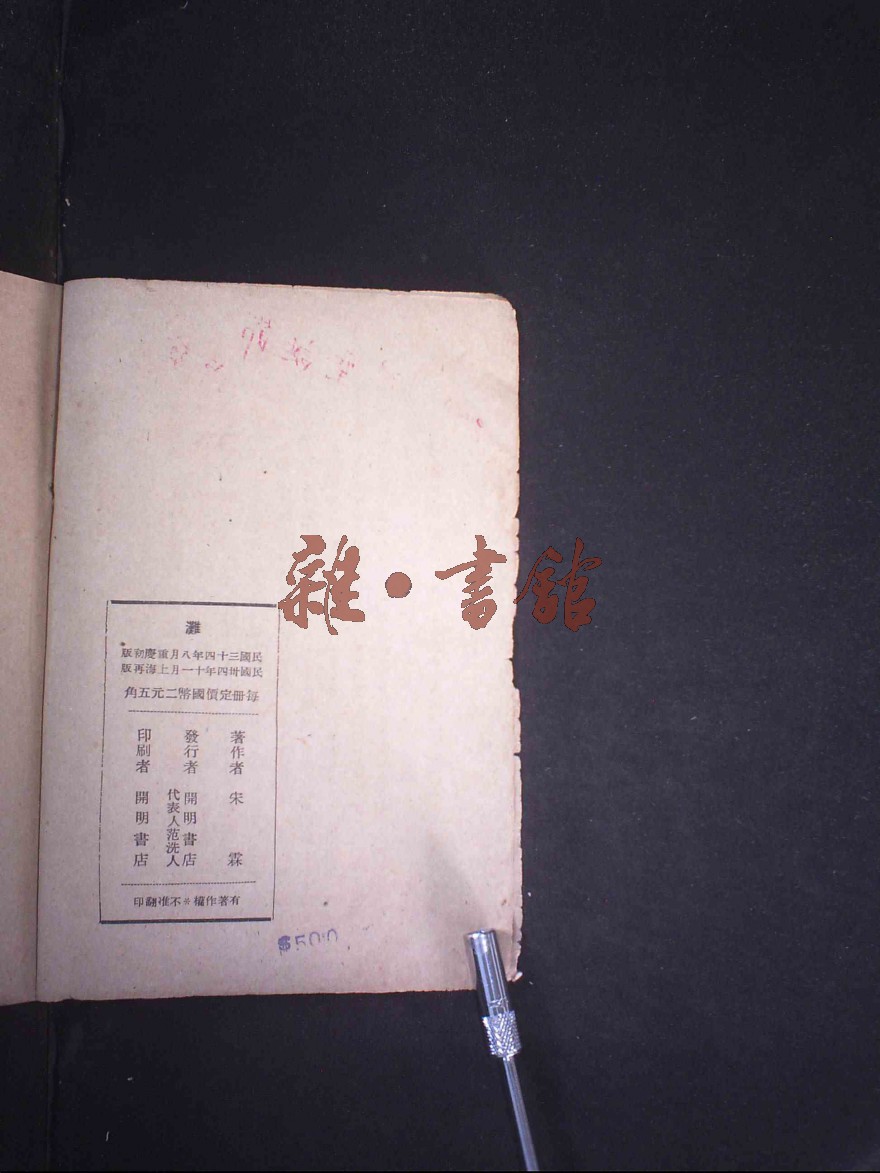 灘
民國三十四年八月重慶初版
民國卅四年十一月上海再版
每冊定價國幣二元五角
著作者 宋霖
發行者 開明書店
代表人范洗人
印刷者 開明書店
有著作權＊不准翻印
$50.0
雜·書館